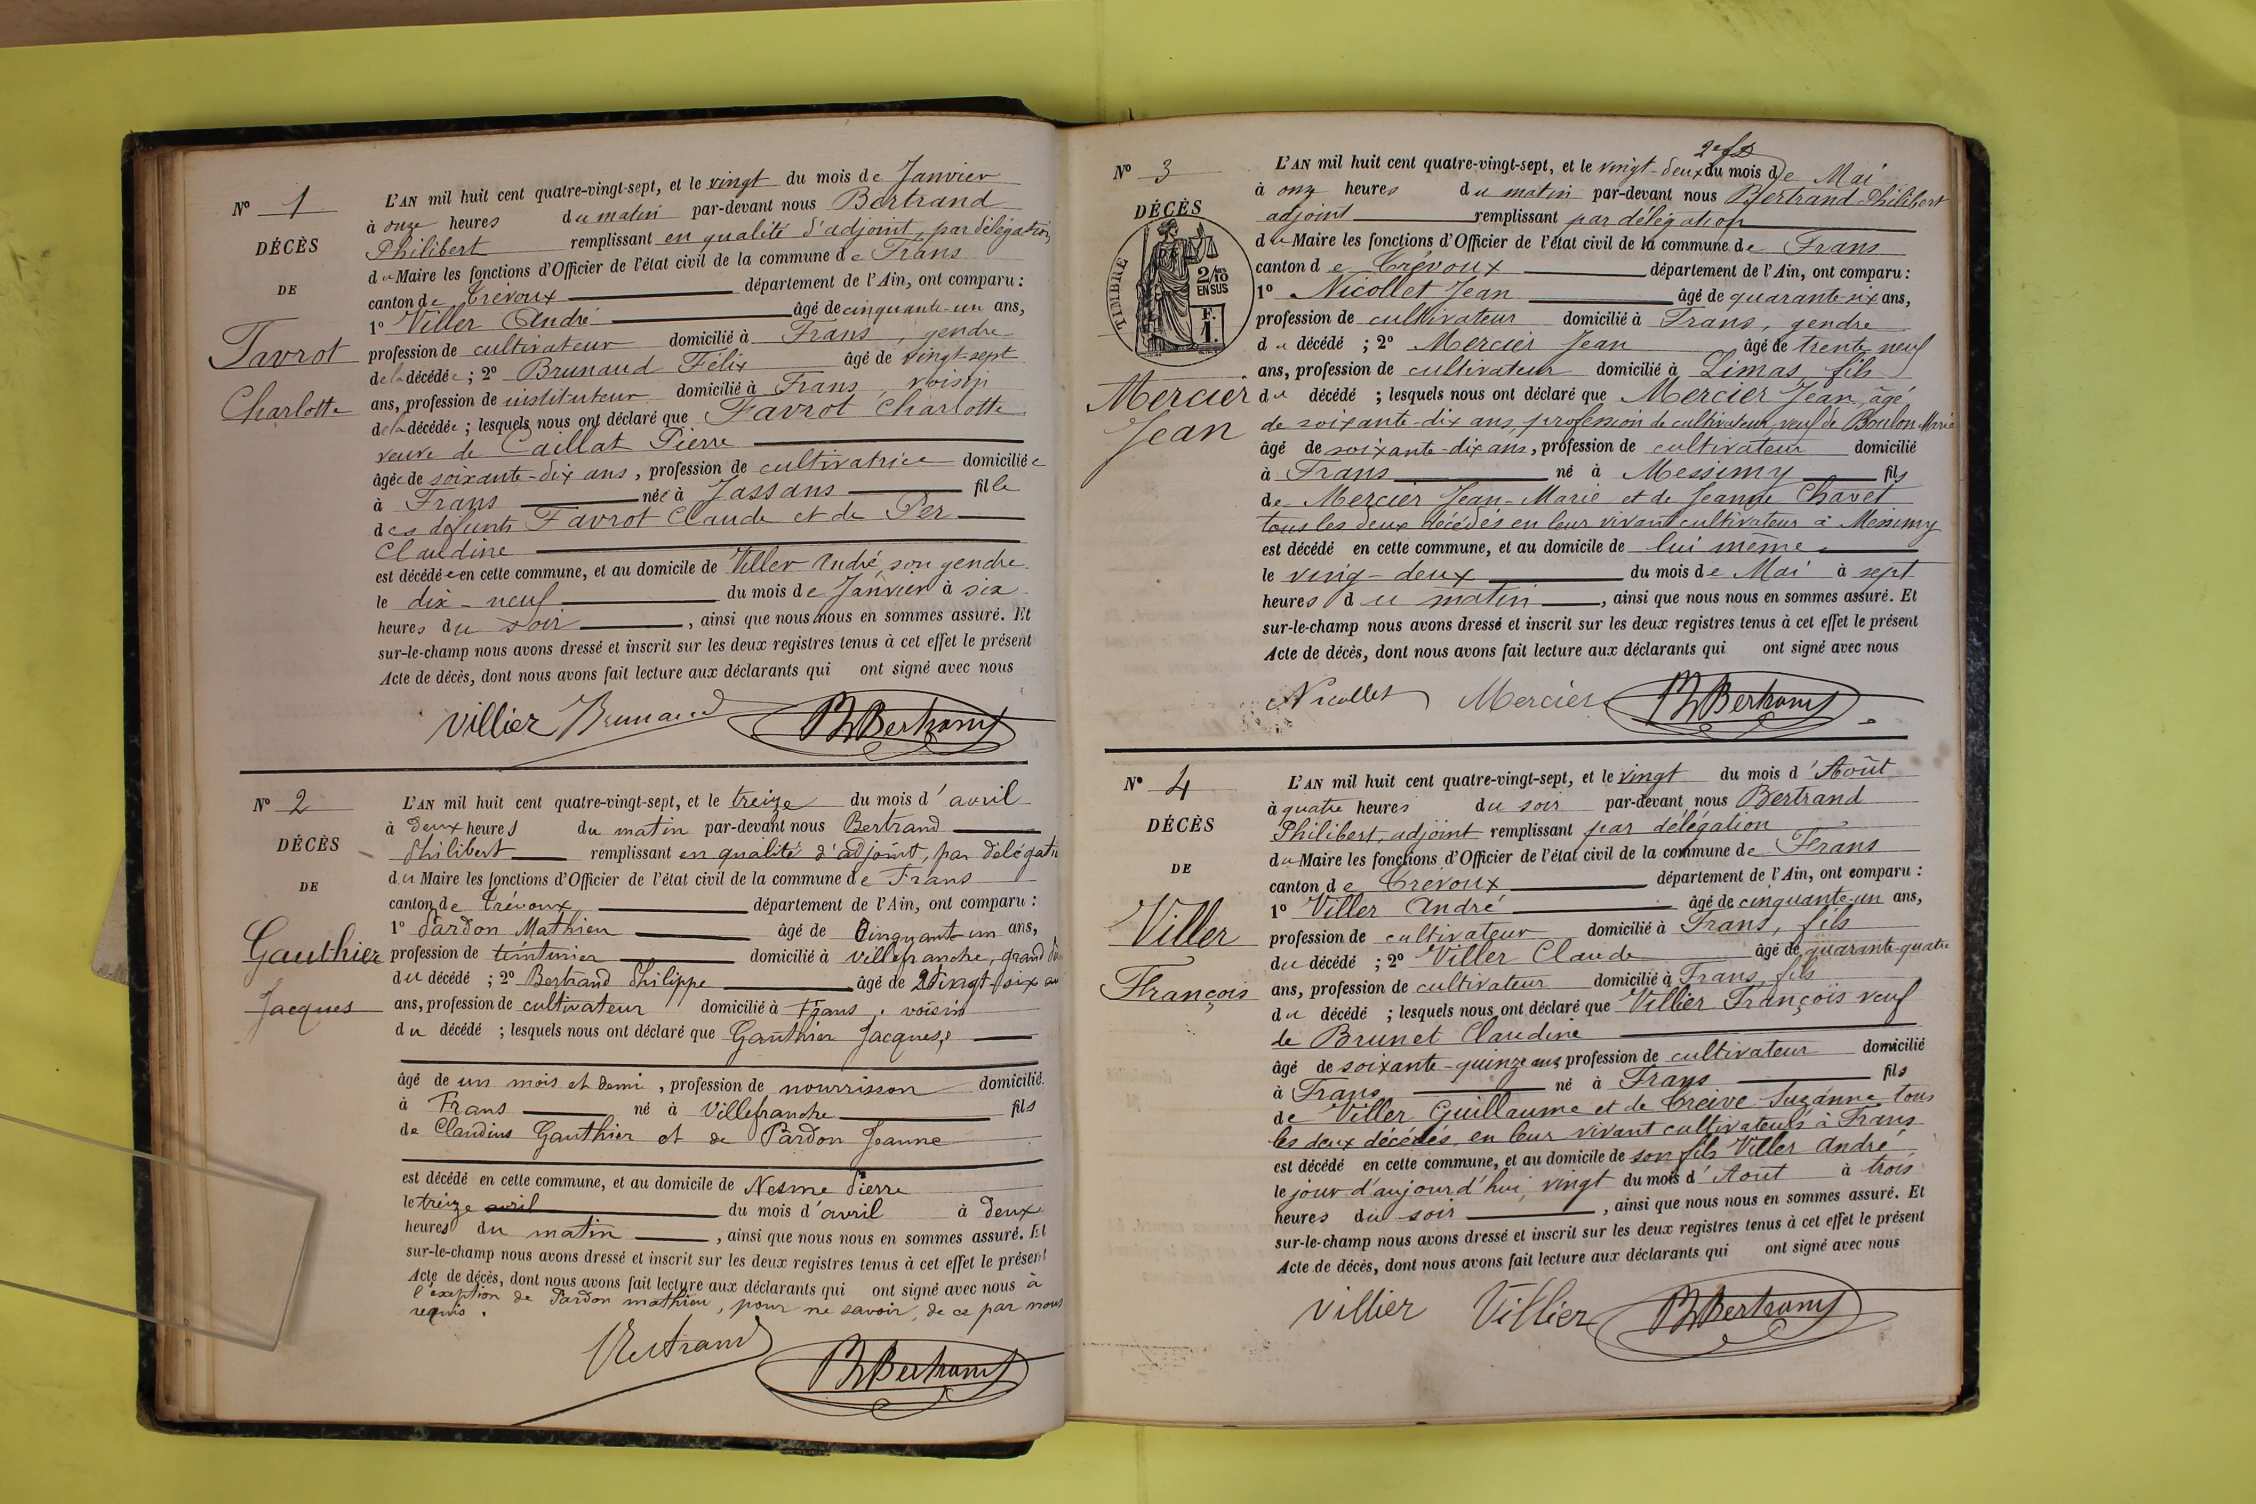 N° 1
DÉCÈS
DE
Favrot
Charlotte
L'AN mil huit cent quatre-vingt-sept, et le vingt du mois de Janvier
à onze heures du matin par-devant nous Bertrand
Philibert remplissant en qualité d'adjoint, par délégation
du Maire les fonctions d'Officier de l'état civil de la commune de Frans
canton de Trévoux département de l'Ain, ont comparu :
1° Viller André âgé de cinquante-un ans,
profession de cultivateur domicilié à Frans, gendre
de la décédée ; 2° Brunaud Félix âgé de vingt-sept
ans, profession de instituteur domicilié à Frans, voisin
de la décédée ; lesquels nous ont déclaré que Favrot Charlotte
veuve de Caillat Pierre
âgée de soixante-dix ans, profession de cultivatrice domiciliée
à Frans née à Jassans fille
des défunts Favrot Claude et de Per
Claudine
est décédée en cette commune, et au domicile de Viller André, son gendre
le dix-neuf du mois de Janvier à six
heures du soir, ainsi que nous nous en sommes assuré. Et
sur-le-champ nous avons dressé et inscrit sur les deux registres tenus à cet effet le présent
Acte de décès, dont nous avons fait lecture aux déclarants qui ont signé avec nous
Villier Brunaud Ph Bertrand
N° 2
DÉCÈS
DE
Gauthier
Jacques
L'AN mil huit cent quatre-vingt-sept, et le treize du mois d'avril
à deux heures du matin par-devant nous Bertrand
Philibert remplissant en qualité d'adjoint, par délégati
du Maire les fonctions d'Officier de l'état civil de la commune de Frans
canton de Trévoux département de l'Ain, ont comparu :
1° Pardon Mathieu âgé de Cinquante un ans,
profession de teinturier domicilié à villefranche, grand
du décédé ; 2° Bertrand Philippe âgé de Vingt-six
ans, profession de cultivateur domicilié à Frans, voisin
du décédé ; lesquels nous ont déclaré que Gauthier Jacques,
âgé de un mois et demi, profession de nourrisson domicilié
à Frans né à Villefranche fils
de Claudius Gauthier et de Pardon Jeanne
est décédé en cette commune, et au domicile de Nesme Pierre
le treize avril du mois d'avril à deux
heures du matin, ainsi que nous nous en sommes assuré. Et
sur-le-champ nous avons dressé et inscrit sur les deux registres tenus à cet effet le présent
Acte de décès, dont nous avons fait lecture aux déclarants qui ont signé avec nous à
l'exeption de Pardon mathieu, pour ne savoir, de ce par nous
requis.
Bertrand Ph Bertrand
N° 3
DÉCÈS
TIMBRE
2/10
EN SUS
F.
1.
Mercier
Jean
L'AN mil huit cent quatre-vingt-sept, et le vingt-deux du mois de Mai
à onz heures du matin par-devant nous Bertrand Philibert
adjoint remplissant par délégation
du Maire les fonctions d'Officier de l'état civil de la commune de Frans
canton de Trévoux département de l'Ain, ont comparu :
1° Nicollet Jean âgé de quarante-six ans,
profession de cultivateur domicilié à Frans, gendre
du décédé ; 2° Mercier Jean âgé de trente neuf
ans, profession de cultivateur domicilié à Limas, fils
du décédé ; lesquels nous ont déclaré que Mercier Jean, âgé
de soixante-dix ans, profession de cultivateur, veuf de Boulon Marie
âgé de soixante-dix ans, profession de cultivateur domicilié
à Frans né à Messimy fils
de Mercier Jean-Marie et de Jeanne Chavet
tous les deux décédés en leur vivant cultivateur à Messimy
est décédé en cette commune, et au domicile de lui même
le ving-deux du mois de Mai à sept
heures du matin, ainsi que nous nous en sommes assuré. Et
sur-le-champ nous avons dressé et inscrit sur les deux registres tenus à cet effet le présent
Acte de décès, dont nous avons fait lecture aux déclarants qui ont signé avec nous
Nicollet Mercier Ph Bertrand
N° 4
DÉCÈS
DE
Viller
François
L'AN mil huit cent quatre-vingt-sept, et le vingt du mois d'Août
à quatre heures du soir par-devant nous Bertrand
Philibert, adjoint remplissant par délégation
du Maire les fonctions d'Officier de l'état civil de la commune de Frans
canton de Trévoux département de l'Ain, ont comparu :
1° Viller André âgé de cinquante-un ans,
profession de cultivateur domicilié à Frans, fils
du décédé ; 2° Viller Claude âgé de quarante-quatre
ans, profession de cultivateur domicilié à Frans, fils
du décédé ; lesquels nous ont déclaré que Villier François veuf
de Brunet Claudine
âgé de soixante-quinze ans, profession de cultivateur domicilié
à Frans né à Frans fils
de Viller Guillaume et de Creive Suzanne tous
les deux décédés, en leur vivant cultivateurs à Frans
est décédé en cette commune, et au domicile de son fils Viller André
le jour d'aujourd'hui, vingt du mois d'Aout à trois
heures du soir, ainsi que nous nous en sommes assuré. Et
sur-le-champ nous avons dressé et inscrit sur les deux registres tenus à cet effet le présent
Acte de décès, dont nous avons fait lecture aux déclarants qui ont signé avec nous
Villier Villier Ph Bertrand